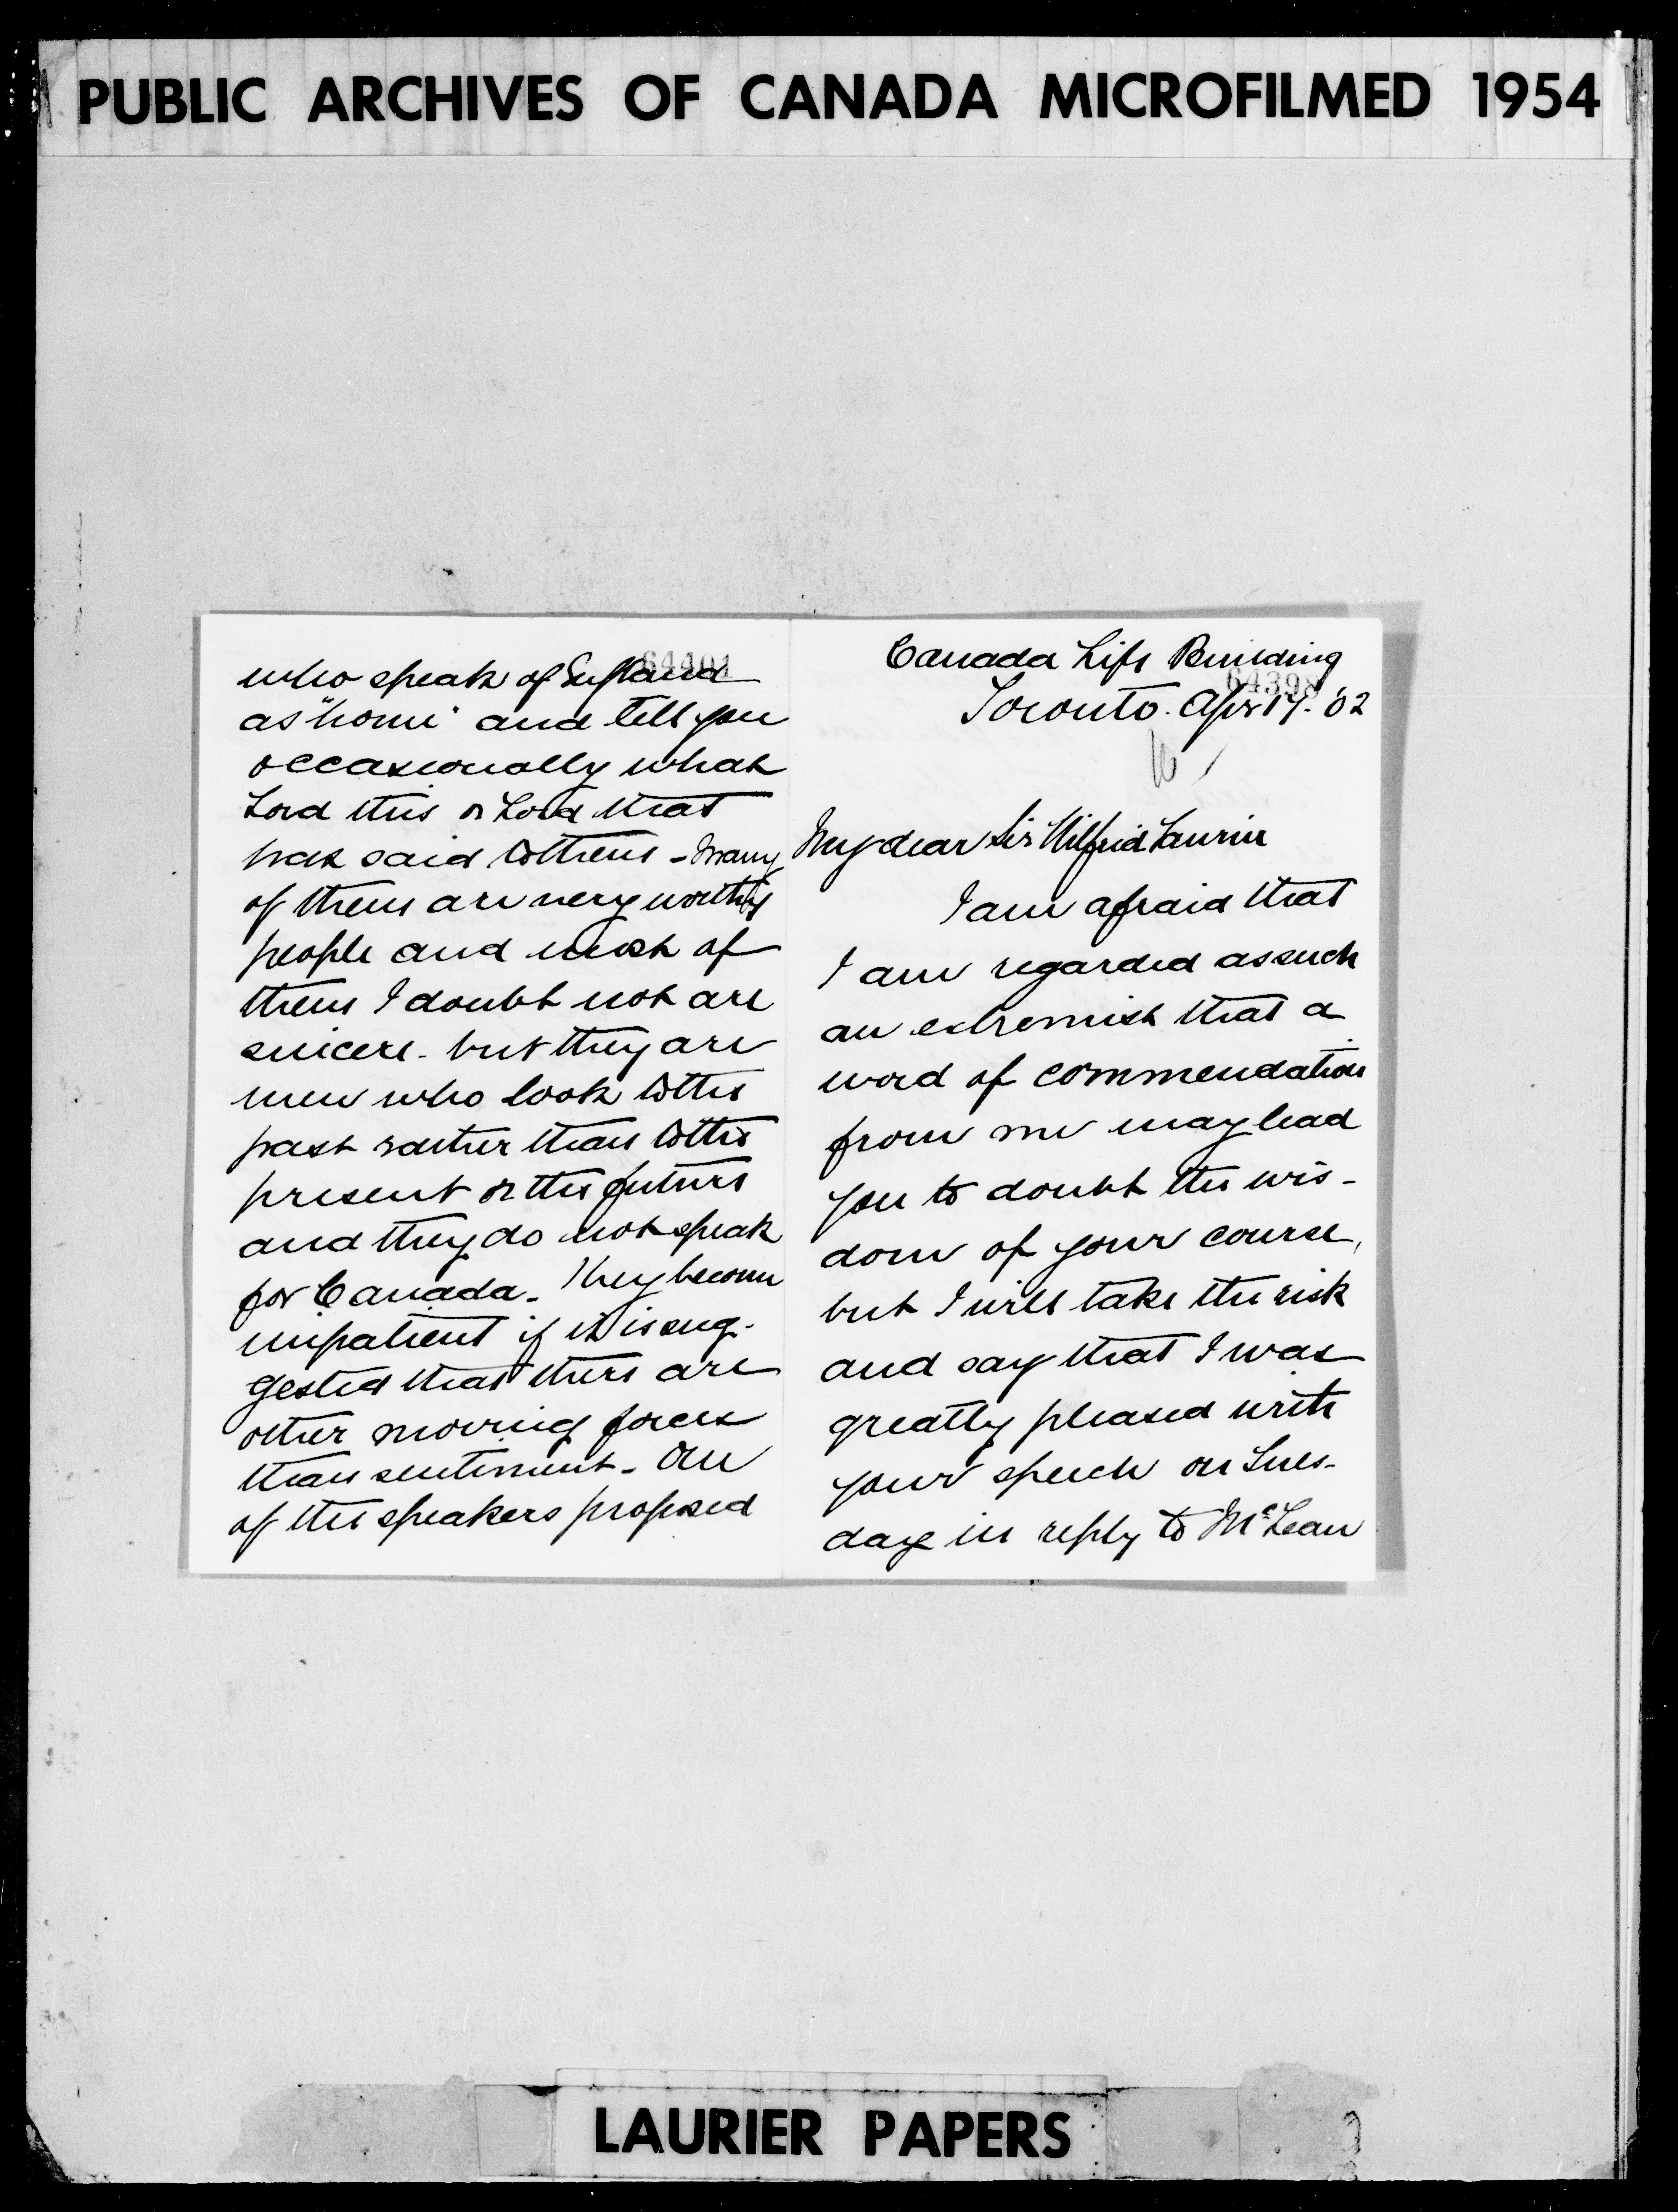 PUBLIC ARCHIVES OF CANADA MICROFILMED 1954
64401
who speak of England
as "home" and tell you
occasionally what
Lord this or Lord that
has said to them - Many
of them are very worthy
people and most of
them I doubt not are
sincere - but they are
men who look to the
past rather than to the
present or the future
and they do not speak
for Canada - They become
impatient if it is sug-
gested that there are
other moving forces
than sentiment - One
of the speakers proposed
Canada Life Building
64398
Toronto. Apr 17. '02
My dear Sir Wilfrid Laurier
I am afraid that
I am regarded as such
an extremist that a
word of commendation
from me may lead
you to doubt the wis-
dom of your course,
but I will take the risk
and say that I was
greatly pleased with
your speech on Tues-
day in reply to McLean
LAURIER PAPERS